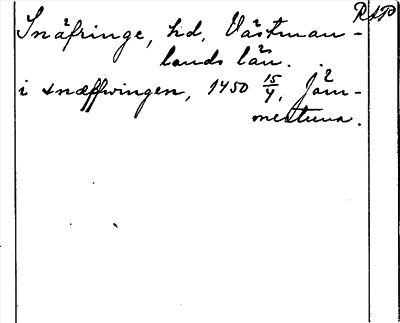 RAP
Snäfringe, hd, Västman-
lands län.
i snæffwingen, 1450 15/4, Jäm-
mertuna.